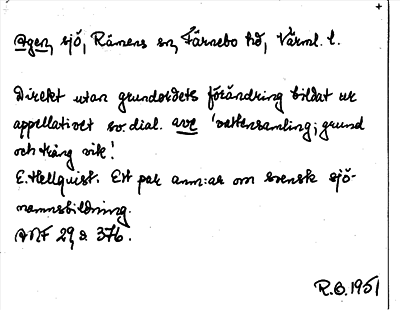 Agen, sjö, Rämens sn, Färnebo hd, Värml. l.
Direkt utan grundordets förändring bildat ur
appellativet sv. dial. ave 'vattensamling; grund
och trång vik'.
E. Hellquist. Ett par anm:ar om svensk sjö-
namnsbildning.
ANF 29, s. 376.
R.O. 1951